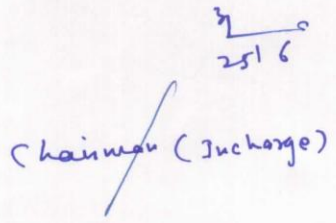 25/6
Chairman (Incharge)